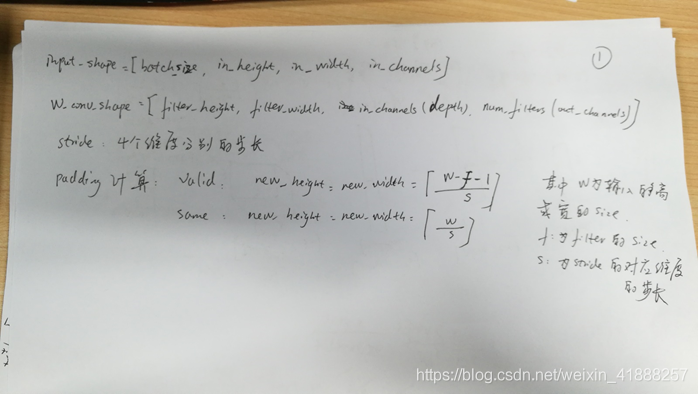 ①
input_shape = [batch_size, in_height, in_width, in_channels]
W_conv_shape = [filter_height, filter_width, in_channels(depth), num_filters(out_channels)]
stride: 4个维度分别的步长
padding计算: valid: new_height = new_width = ⌈(W-F-1)/S⌉
same: new_height = new_width = ⌈W/S⌉
其中W为输入的高
或宽的size.
f: 为filter的size.
s: 为stride的对应维度
的步长
https://blog.csdn.net/weixin_41888257